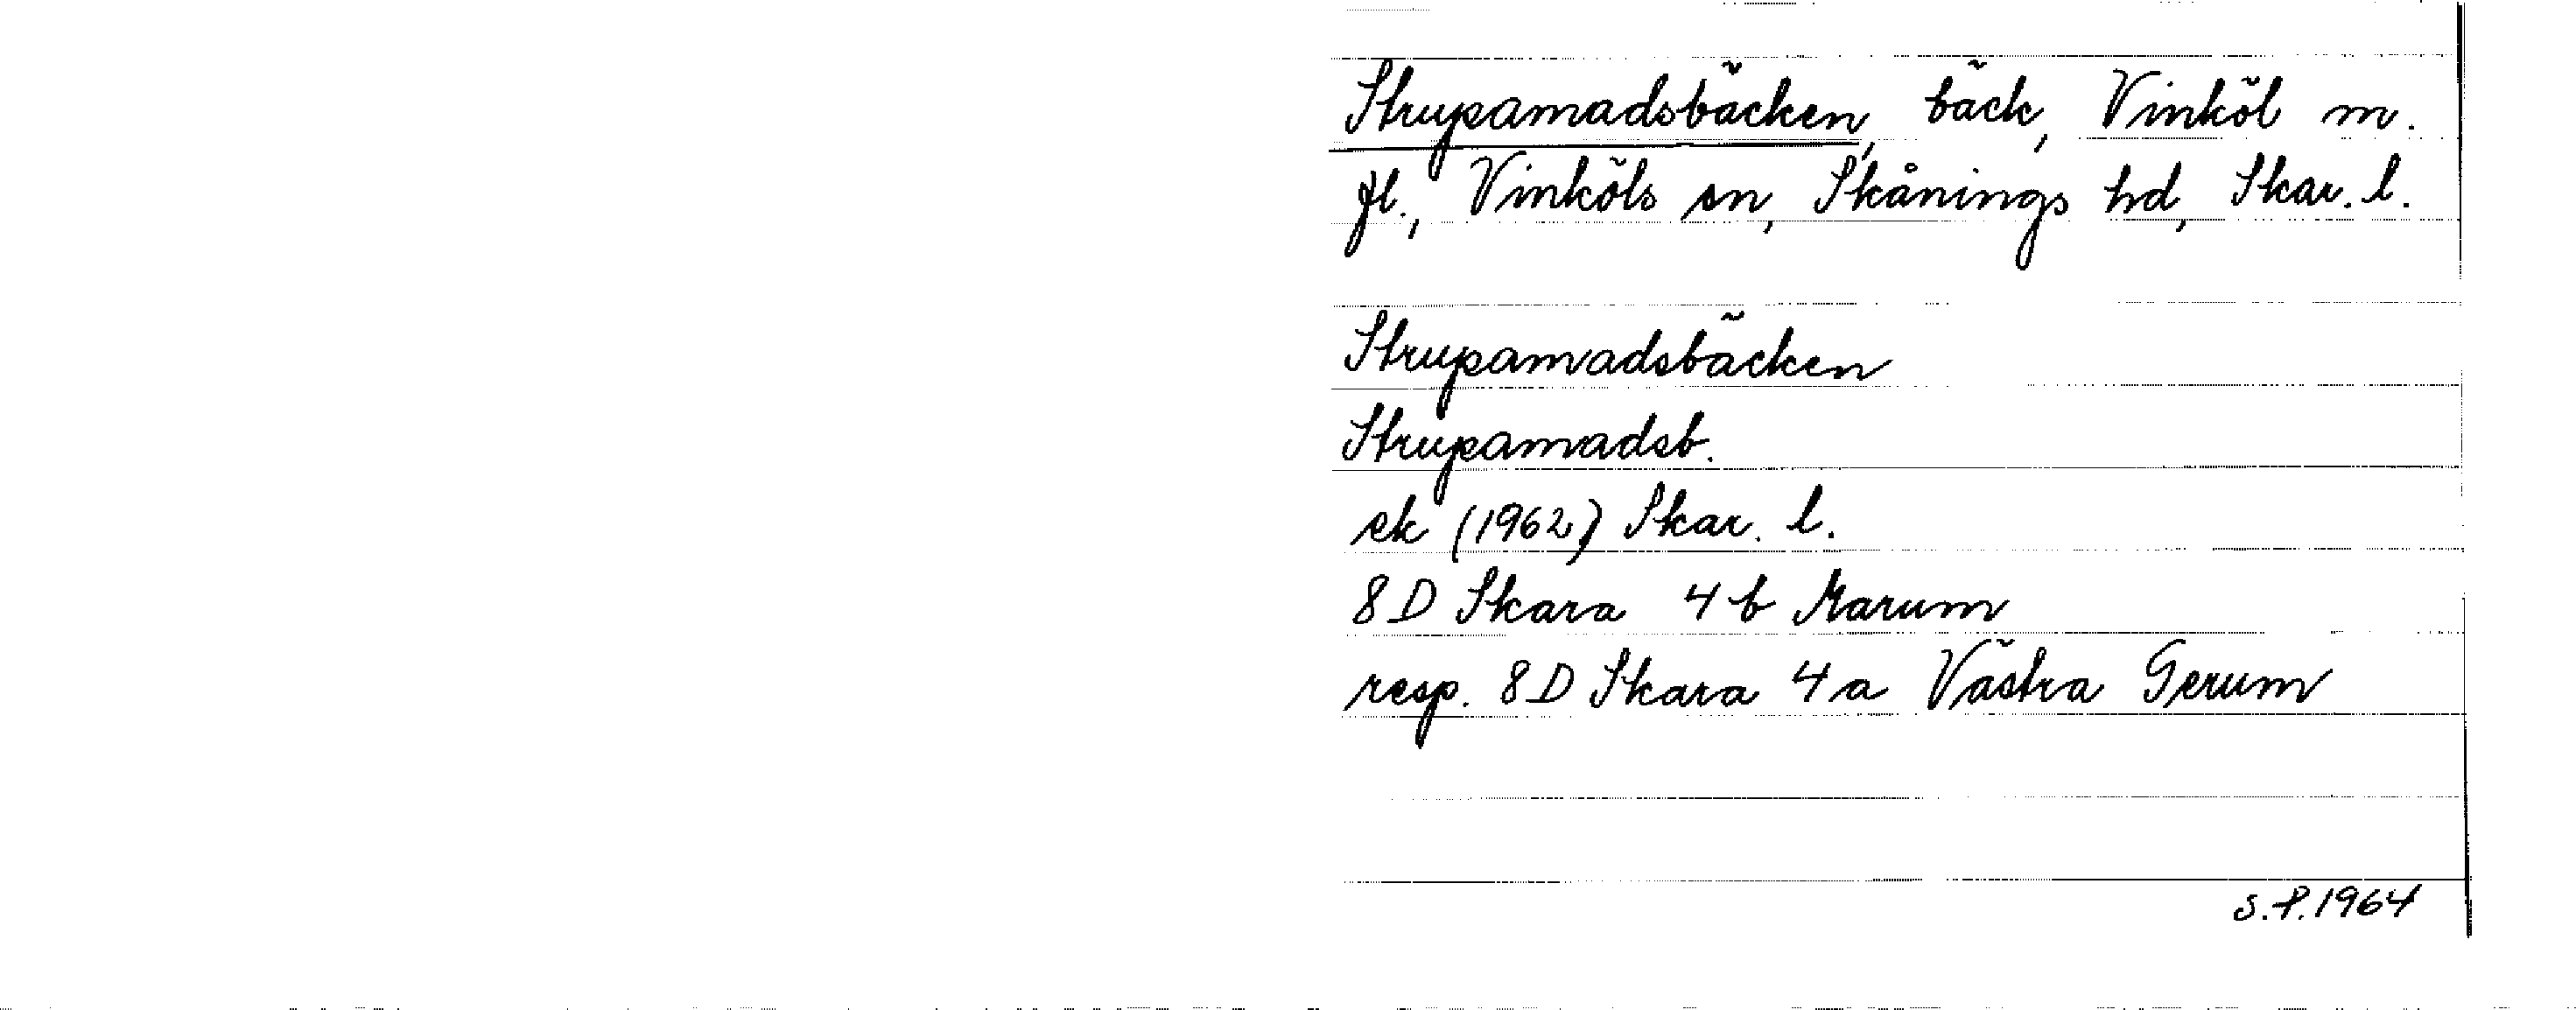 Strupamadsbäcken, bäck, Vinköl m.
fl., Vinköls sn, Skånings hd, Skar. l.
Strupamadsbäcken
Strupamadsb.
ek (1962) Skar. l.
8D Skara 4b Marum
resp. 8D Skara 4a Västra Gerum
S.P. 1964